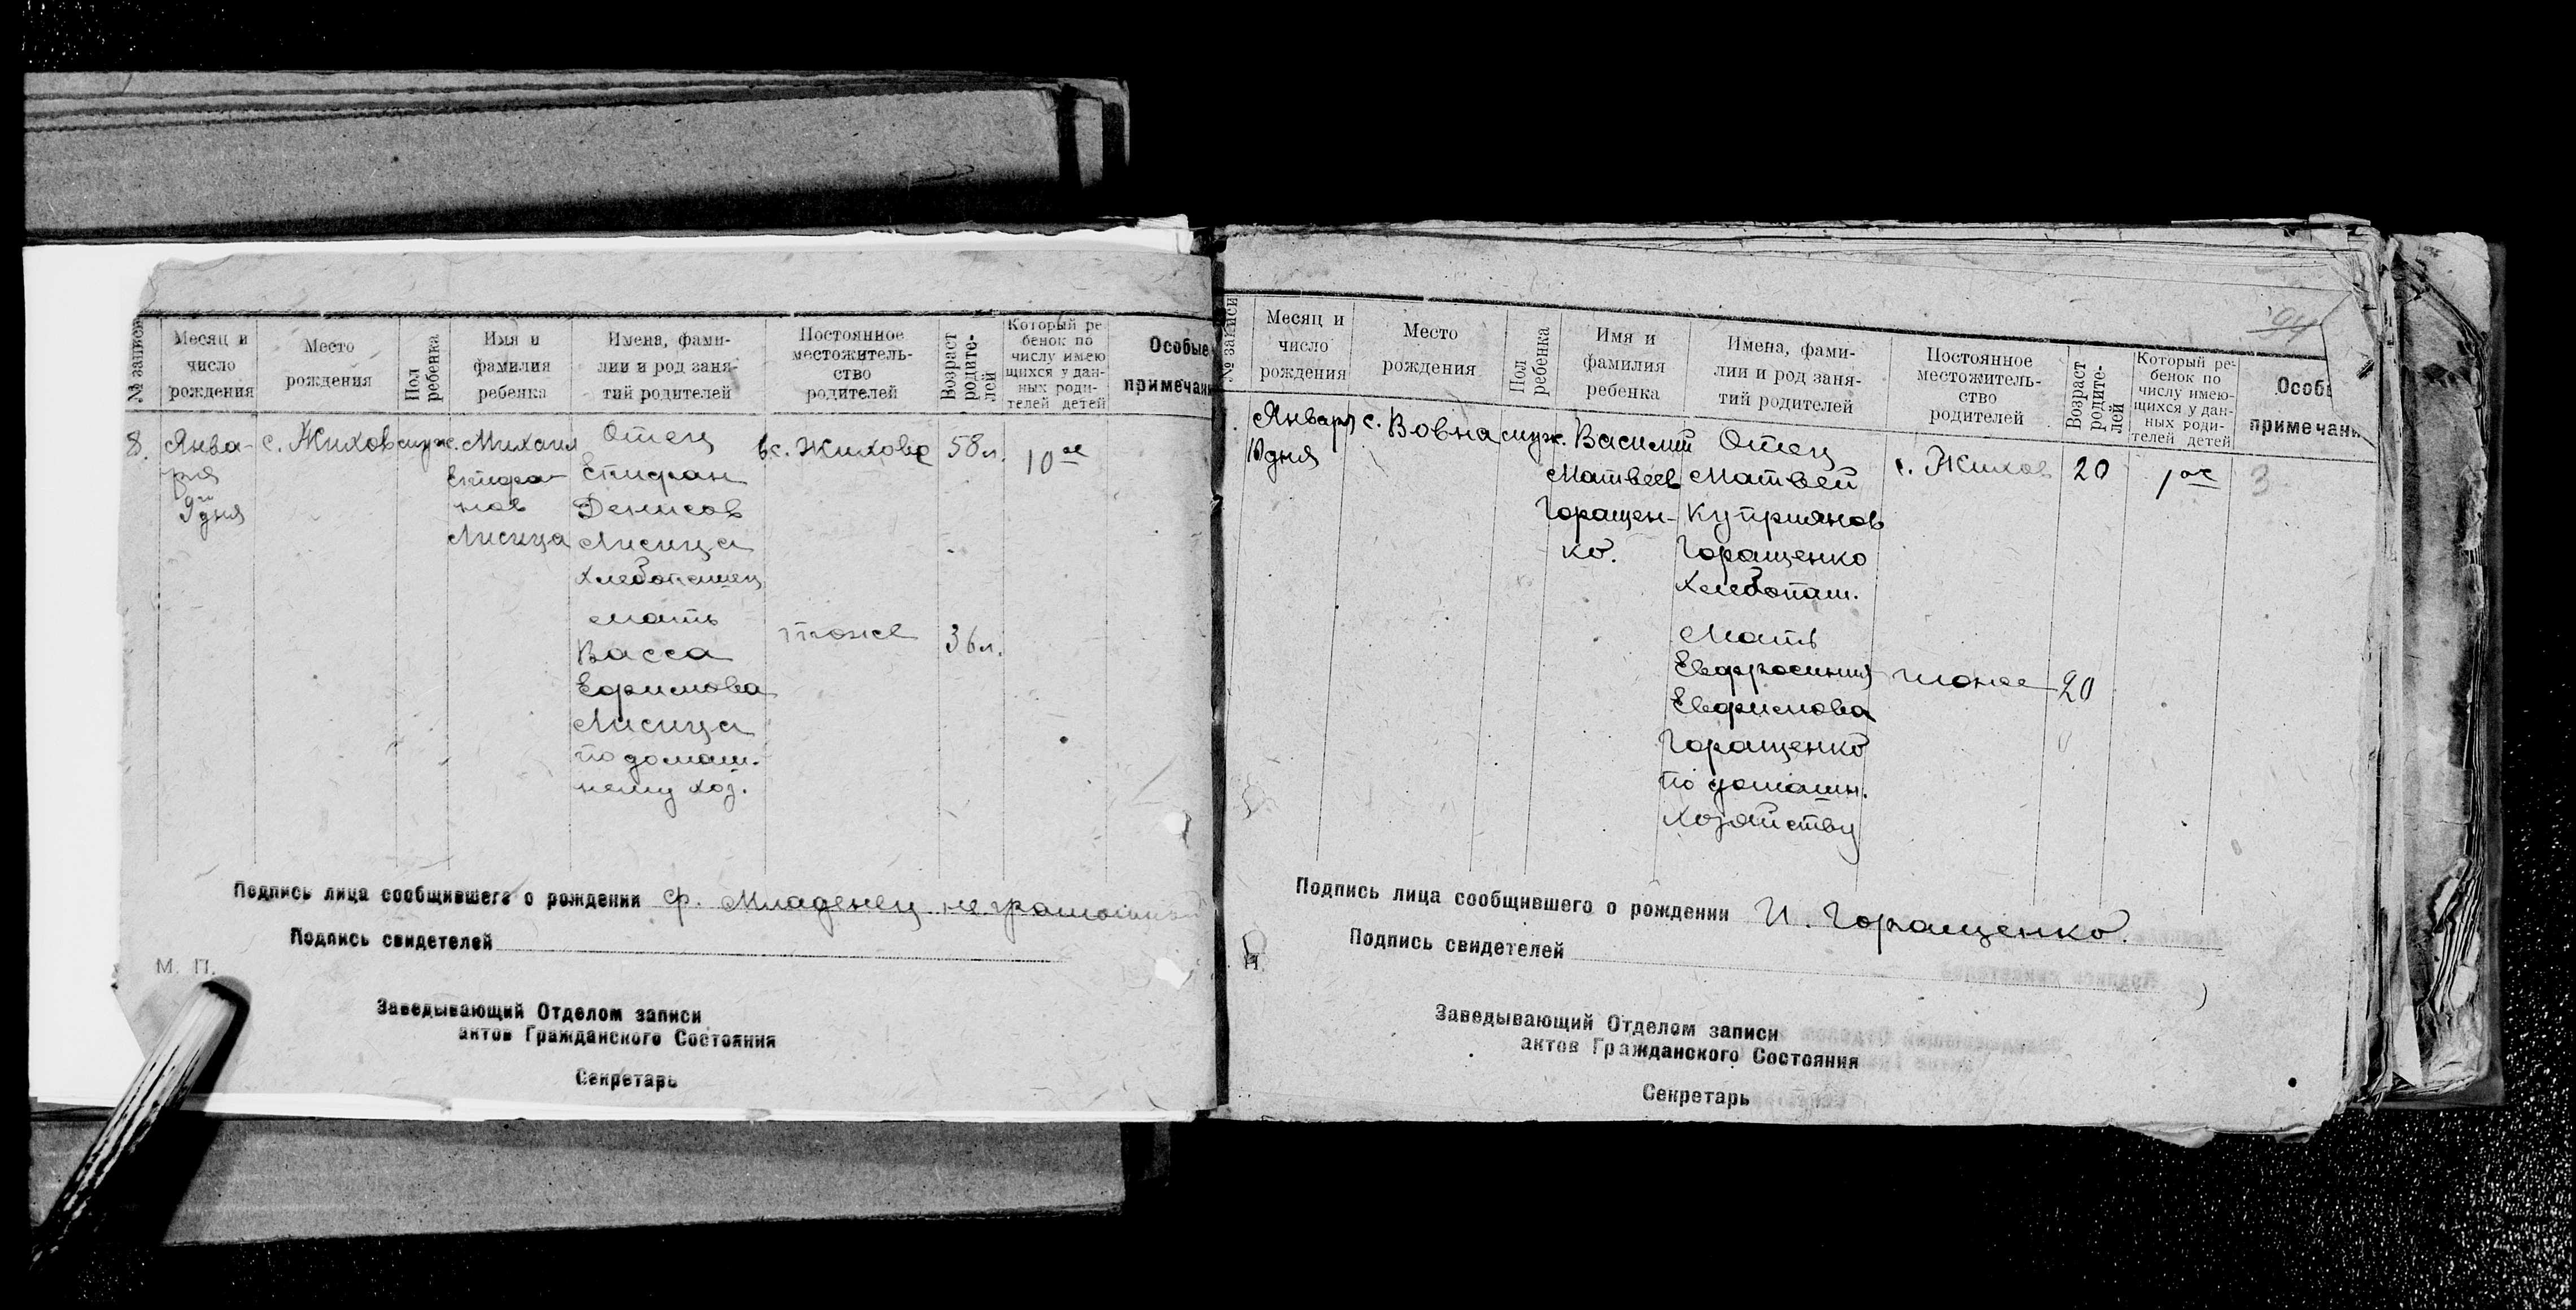 № записи
Месяц и
число
рождения
Место
рождения
Пол
ребенка
Имя и
фамилия
ребенка
Имена, фами-
лии и род заня-
тий родителей
Постоянное
местожитель-
ство
родителей
Возраст
родите-
лей
Который ре
бенок по
числу имею
щихся у дан-
ных роди-
телей детей
Особые
примечани
8.
Янва-
ря
9й
дня
с. Жихов
муж.
Михаил
Епифа-
нов
Лисица
Отец
Епифан
Денисов
Лисица
хлебопашец
мать
Васса
Ефимова
Лисица
по домаш.
нему хоз.
в с. Жихове
тоже
58 л.
36 л.
10ое
Подпись лица сообщившего о рождении Ф. Младенец неграмотный
Подпись свидетелей
М. П.
Заведывающий Отделом записи
актов Гражданского Состояния
Секретарь
№ записи
Месяц и
число
рождения
Место
рождения
Пол
ребенка
Имя и
фамилия
ребенка
Имена, фами-
лии и род заня-
тий родителей
Постоянное
местожитель-
ство
родителей
Возраст
родите-
лей
Который ре-
бенок по
числу имею-
щихся у дан-
ных роди-
телей детей
Особ
примечани
Января
10 дня
с. Вовна
муж.
Василий
Матвеев
Горащен-
ко.
Отец
Матвей
Куприянов
Горащенко
хлебопаш.
Мать
Евфросиния
Евфимова
Горащенко
по домашн.
хозяйству
с. Жихов
тоже
20
20
1ое
3
Подпись лица сообщившего о рождении И. Горащенко.
Подпись свидетелей
П.
Заведывающий Отделом записи
актов Гражданского Состояния
Секретарь